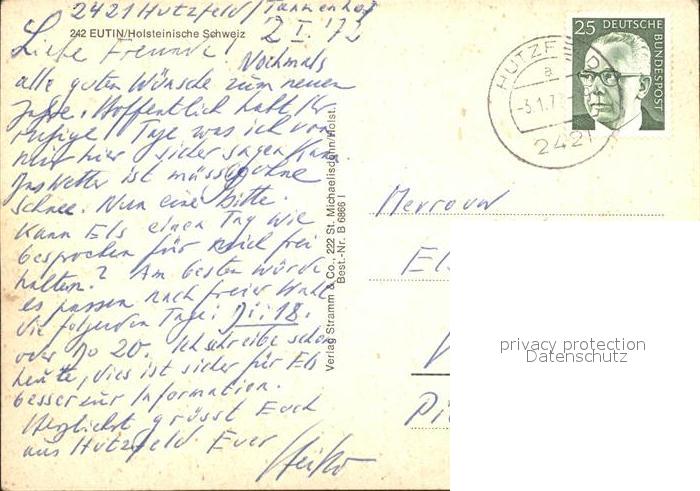 2421 Hutzfeld/Tannenhof
242 EUTIN/Holsteinische Schweiz
2 I. 72
Liebe Freunde!
Nochmals
alle guten Wünsche zum neuen
Jahre. Hoffentlich habt Ihr
ruhige Tage was ich von
mir hier sicher sagen kann.
Das Wetter ist mässig ohne
Schnee. Nun eine Bitte.
Kann Els einen Tag wie
besprochen für mich frei
halten? Am besten würde
es passen nach freier Wahl
die folgenden Tage: Di. 18.
oder Do 20. Ich schreibe schon
heute, dies ist sicher für Els
besser zur Information.
Herzlichst grüsst Euch
aus Hutzfeld Euer
Heiko
Verlag Stramm & Co., 222 St. Michaelisdonn/Holst.
Best.-Nr. B 6866 I
25 DEUTSCHE BUNDESPOST
HUTZFELD
a
-3.1.7
2421
Mevrouw
El
privacy protection
Datenschutz